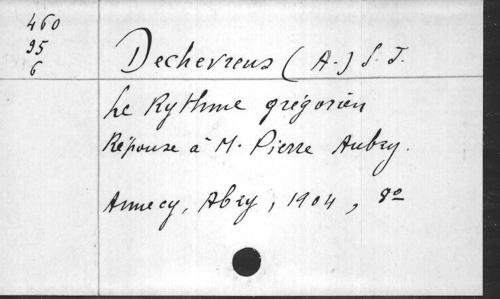 460
95
6
Dechevrens (A.) S. J.
Le Rythme grégorien
Réponse à M. Pierre Aubry.
Annecy, Abry, 1904, 8º